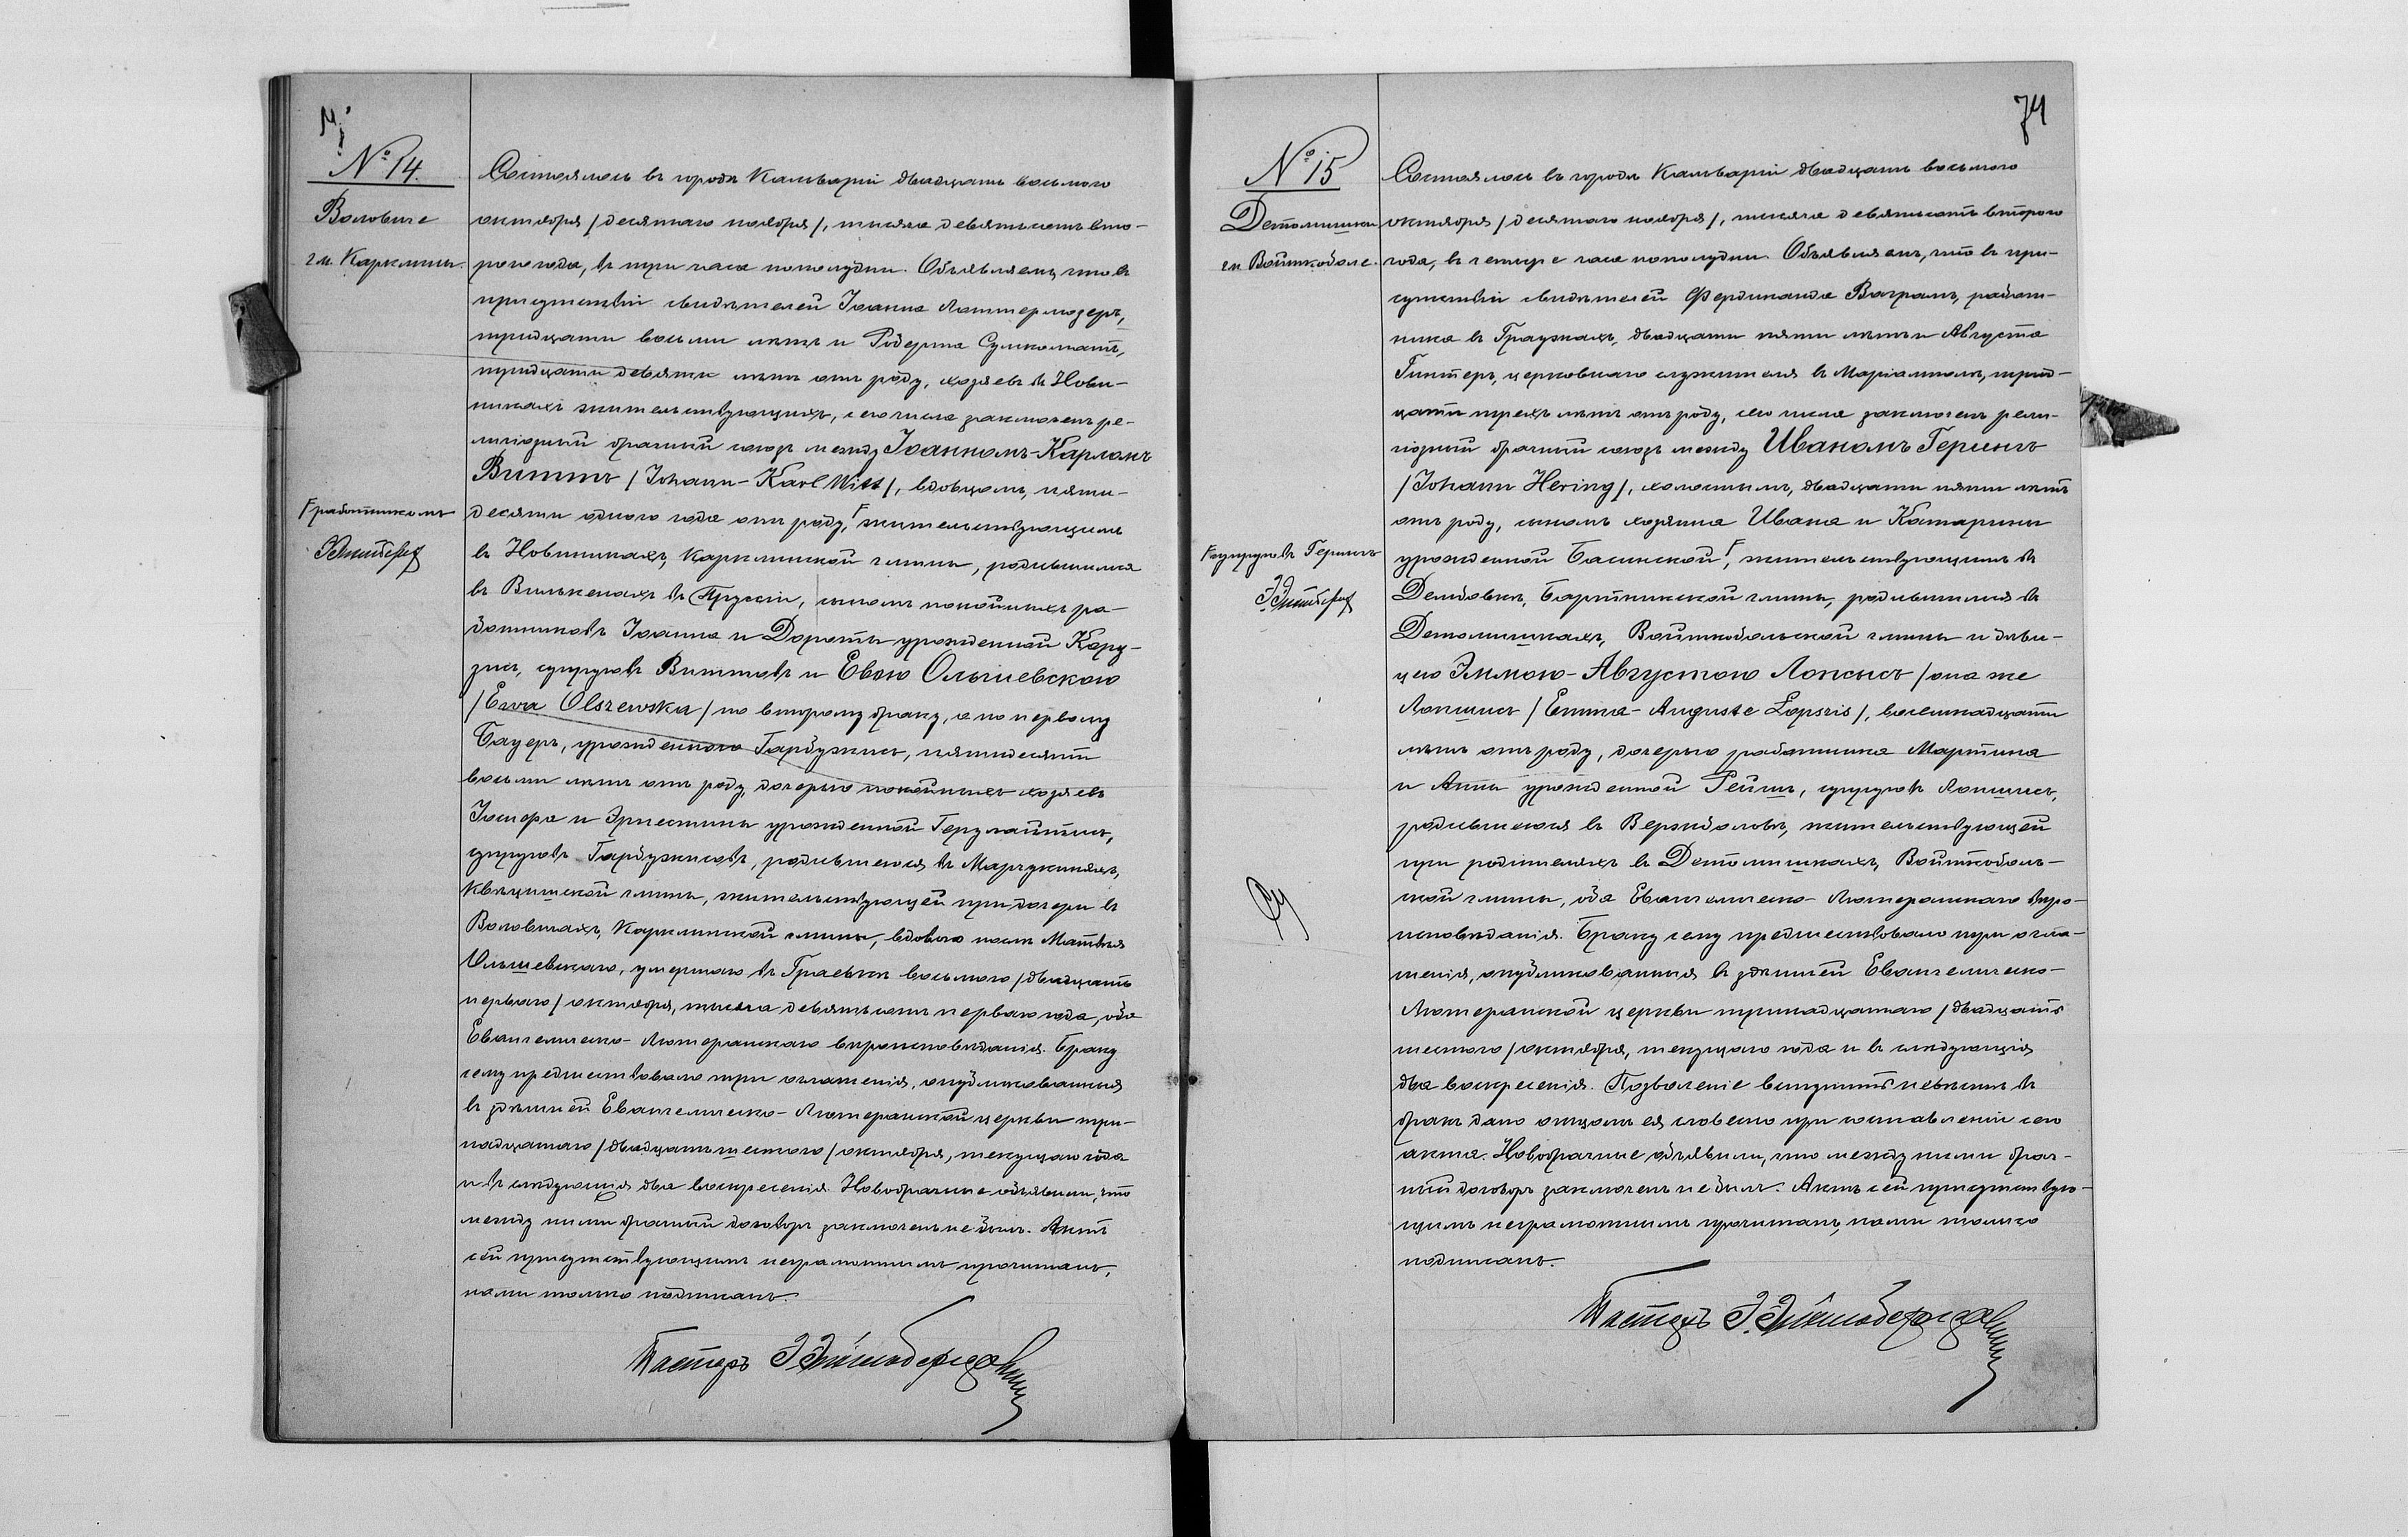 № 14.
Воловиче
гм. Карклины.
Состоялось въ городѣ Кальваріи двадцать восьмого
октября /десятаго ноября/, тысяча девятьсотъ вто-
рого года, въ три часа пополудни. Объявляемъ, что въ
присутствіи свидѣтелей Іоанна Лоттермозеръ,
тридцати восьми лѣтъ и Родериха Сулкоматъ,
тридцати девяти лѣтъ отъ роду, хозяевъ въ Нови-
никахъ жительствующихъ, сего числа заключенъ ре-
лигіозный брачный союзъ между Іоанномъ-Карломъ
Виттъ /Johann-Karl Witt/, вдовцомъ, пяти-
десяти одного года отъ роду, Γ жительствующимъ
Γ работникомъ
въ Новиникахъ, Карклинской гмины, родившимся
въ Вилькенахъ въ Пруссіи, сыномъ покойныхъ ра-
ботниковъ Іоанна и Дороты урожденной Кару-
зисъ, супруговъ Виттовъ и Евою Ольшевскою
/Ewa Olszewska/ по второму браку, а по первому
Бауеръ, урожденною Гарбужисъ, пятидесяти
восьми лѣтъ отъ роду, дочерью покойныхъ хозяевъ
Іосифа и Эрнестины урожденной Герулайтисъ,
супруговъ Гарбужисовъ, родившеюся въ Маргукиняхъ,
Квѣцишской гмины, жительствующей при дочери въ
Воловичахъ, Карклинской гмины, вдовою послѣ Матвѣя
Ольшевскаго, умершаго въ Граевкѣ восьмого /двадцать
перваго/ октября, тысяча девятьсотъ перваго года, оба
Евангелическо-Лютеранскаго вѣроисповѣданія. Браку
сему предшествовало три оглашенія, опубликованныя
въ здѣшней Евангелическо-Лютеранской церкви три-
надцатаго /двадцать шестого/ октября, текущаго года
и въ слѣдующія два воскресенія. Новобрачные объявили, что
между ними брачный договоръ заключенъ не былъ. Актъ
сей присутствующимъ неграмотнымъ прочитанъ,
нами только подписанъ.
Пасторъ
№ 15
74
Детомишки
гм. Войткоболе.
Состоялось въ городѣ Кальваріи двадцать восьмого
октября /десятаго ноября/, тысяча девятьсотъ второго
года, въ четыре часа пополудни. Объявляемъ, что въ при-
сутствіи свидѣтелей Фердинанда Ваграмъ, работ-
ника въ Граужкахъ, двадцати пяти лѣтъ и Августа
Гинтеръ, церковнаго служителя въ Маріамполѣ, трид-
цати трехъ лѣтъ отъ роду, сего числа заключенъ рели-
гіозный брачный союзъ между Иваномъ Герингъ
/Johann Hering/, холостымъ, двадцати пяти лѣтъ
отъ роду, сыномъ хозяина Ивана и Катарины
урожденной Басинской Γ, жительствующимъ въ
Γ супруговъ Герингъ
Дембовкѣ, Бартниксской гмины, родившимся въ
Детомишкахъ, Войткобольской гмины и дѣви-
цею Эммою-Августою Лопсысъ /она же
Лопшисъ /Emma-Auguste Lopszis/, восемнадцати
лѣтъ отъ роду, дочерью работника Мартина
и Анны урожденной Рейшъ, супруговъ Лопшисъ,
родившеюся въ Вержболовѣ, жительствующей
при родителяхъ въ Детомишкахъ, Войткоболь-
ской гмины, оба Евангелическо-Лютеранскаго вѣро-
исповѣданія. Браку сему предшествовало три огла-
шенія, опубликованныя въ здѣшней Евангелическо-
Лютеранской церкви тринадцатаго /двадцать
шестого/ октября, текущаго года и въ слѣдующія
два воскресенія. Позволеніе вступить невѣстѣ въ
бракъ дано отцомъ ея словесно при составленіи сего
акта. Новобрачные объявили, что между ними брач-
ный договоръ заключенъ не былъ. Актъ сей присутствую-
щимъ неграмотнымъ прочитанъ, нами только
подписанъ.
Пасторъ